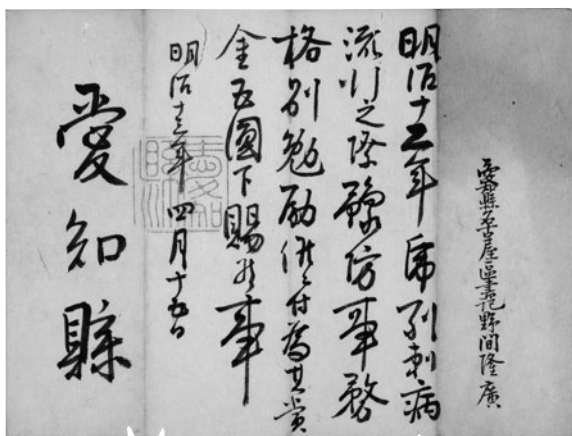 愛知縣名古屋區書記野間隆廣
明治十二年虎列剌病
流行之際豫防事務
格別勉励候ニ付為其賞
金五圓下賜候事
明治十三年四月十五日
愛知縣